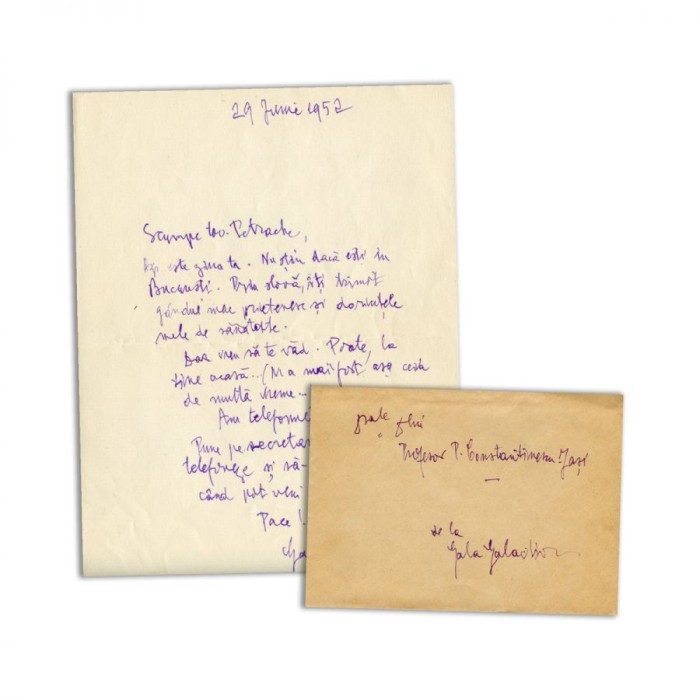 29 Junie 1952
Scumpe tov. Petrache,
este ziua ta. Nu știu dacă ești în
București. Prin slovă, îți trimit
gândul meu prietenesc și dorințele
mele de sănătate.
Dar vreu să te văd. Poate, la
tine acasă... (N'a mai fost așa ceva
de multă vreme
Am telefonu
Pune pe secretar
telefoneze și să-
când pot veni
Pace!
Ga
Profesor P. Constantinescu-Iași
de la
Gala Galaction